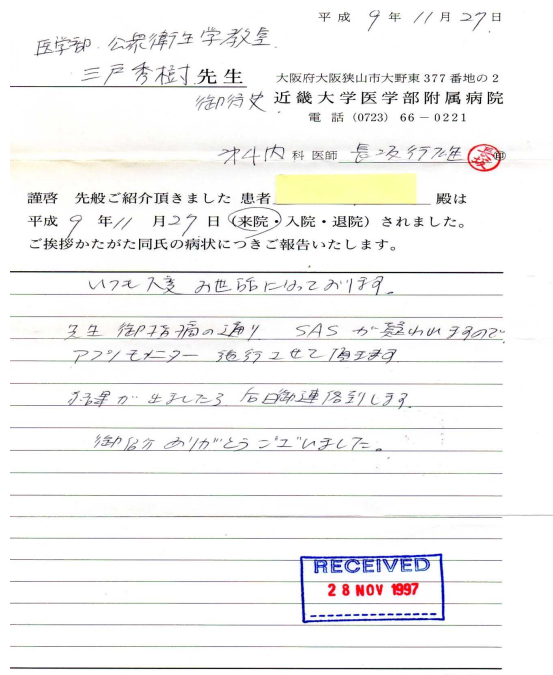 平成 9 年 11 月 27 日
医学部 公衆衛生学教室
三戸秀樹 先生
御侍史
大阪府大阪狭山市大野東377番地の2
近畿大学医学部附属病院
電話 (0723) 66-0221
オ4内 科 医師 長坂行雄 ㊞
謹啓 先般ご紹介頂きました 患者 殿は
平成 9 年 11 月 27 日（来院・入院・退院）されました。
ご挨拶かたがた同氏の病状につきご報告いたします。
いつも大変 お世話になっております。
先生 御指摘の通り SAS が疑われますので
アプノモニター 施行させて頂きます
結果が出ましたら 后日御連絡致します
御紹介ありがとうございました。
RECEIVED
28 NOV 1997